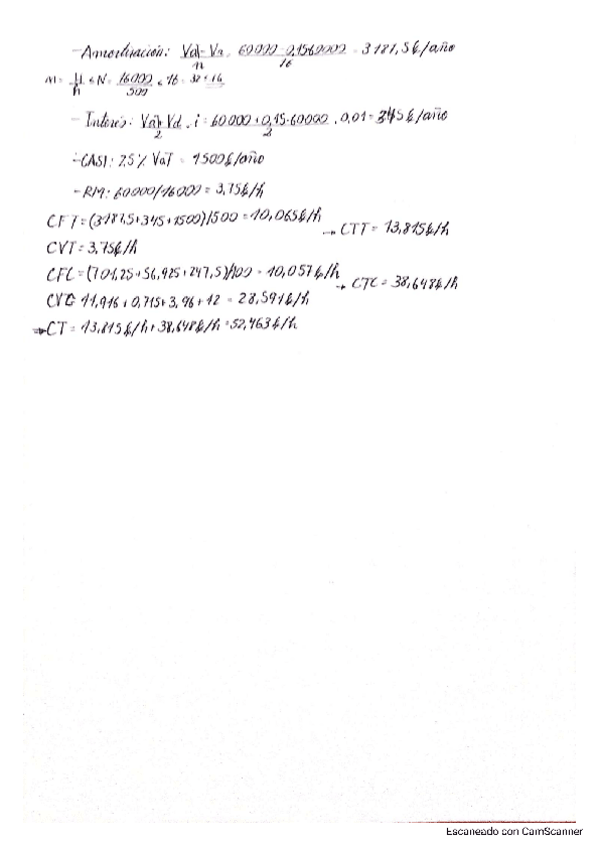 - Amortización: Va1 - Va / n = 60000 - 0,15·60000 / 16 = 3187,5€/año
n = H / h < N = 16000 / 500 < 16 = 32 < 16
- Interés: Va + Vd / 2 · i = 60000 + 0,15·60000 / 2 · 0,01 = 345€/año
- CASI: 2,5% VaT = 1500€/año
- RM: 60000/16000 = 3,75€/h
CFT = (3187,5 + 345 + 1500)/500 = 10,065€/h
→ CTT = 13,815€/h
CVT = 3,75€/h
CFC = (701,25 + 56,925 + 247,5)/100 = 10,057€/h
→ CTC = 38,648€/h
CVC = 11,916 + 0,715 + 3,96 + 12 = 28,591€/h
⇒ CT = 13,815€/h + 38,648€/h = 52,463€/h
Escaneado con CamScanner